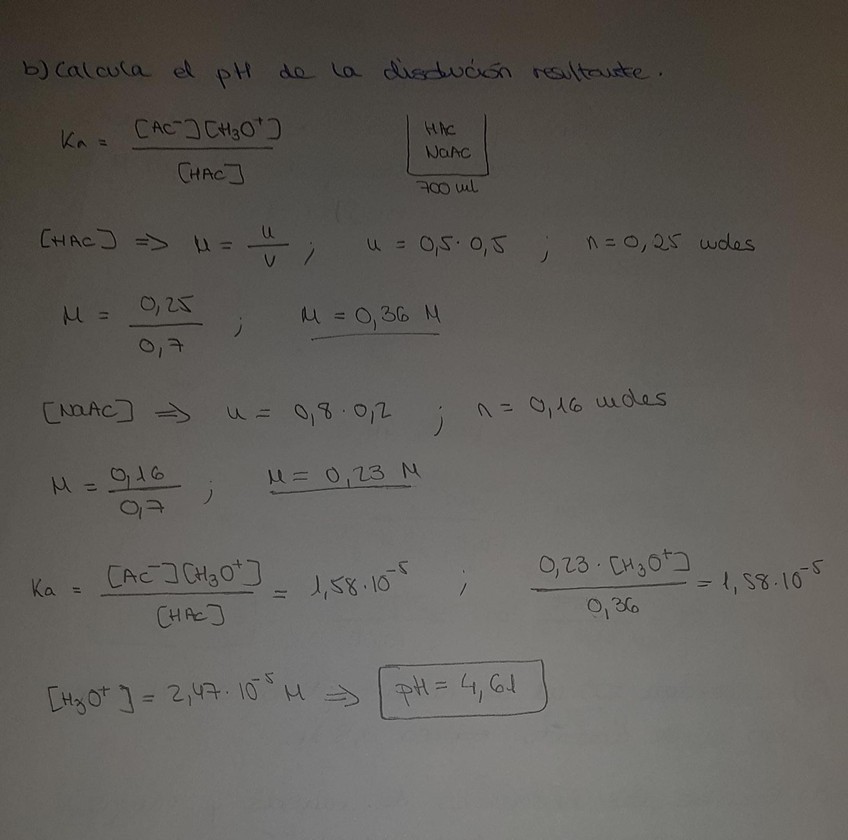 b) Calcula el pH de la disolución resultante.
Ka = [AC⁻][H₃O⁺] / [HAC]
HAC
NaAC
700 ml
[HAC] => M = n / V ; n = 0,5·0,5 ; n = 0,25 moles
M = 0,25 / 0,7 ; M = 0,36 M
[NaAC] => n = 0,8·0,2 ; n = 0,16 moles
M = 0,16 / 0,7 ; M = 0,23 M
Ka = [AC⁻][H₃O⁺] / [HAC] = 1,58·10⁻⁵ ; 0,23·[H₃O⁺] / 0,36 = 1,58·10⁻⁵
[H₃O⁺] = 2,47·10⁻⁵ M => pH = 4,61